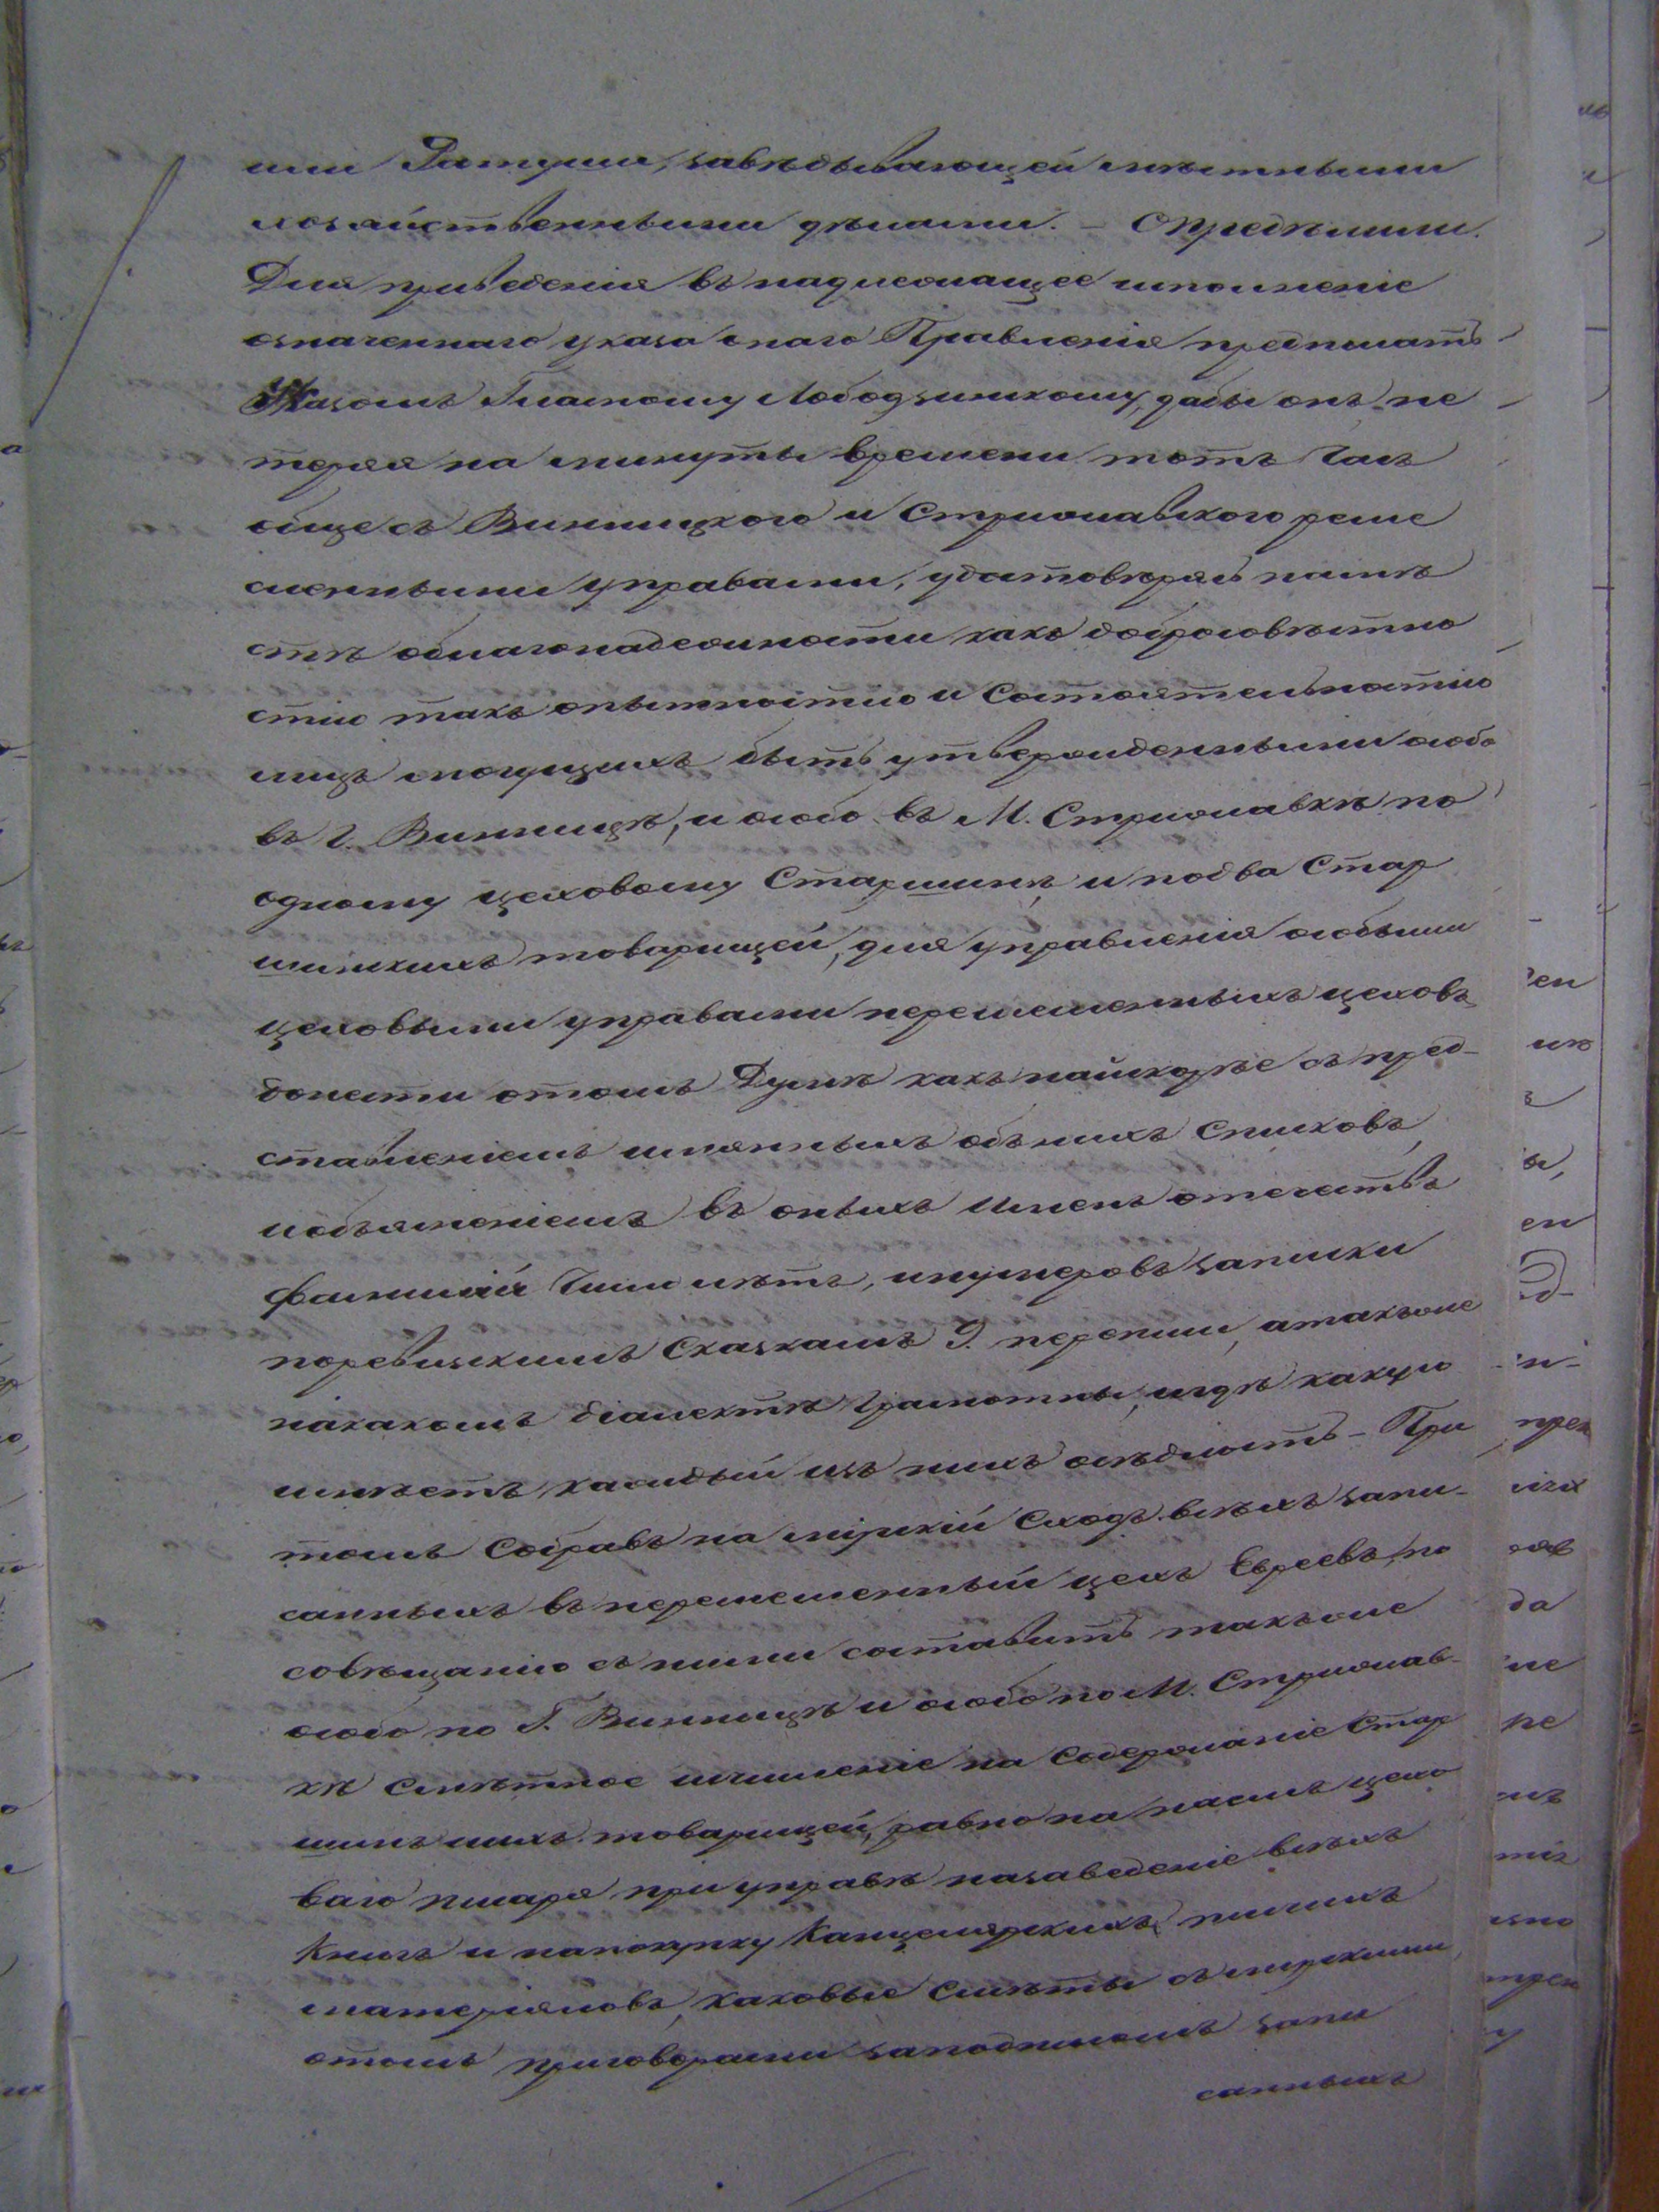 или Ратуши, завѣдывающей мѣстными
хозяйственными дѣлами. – Опредѣлили.
Для приведенія въ надлежащее исполненіе
означеннаго указа онаго Правленія предписать
Указомъ Гласному Лободзинскому, дабы онъ не
теряя на минуты времени тотъ часъ
обще съ Винницкого и Стрижавского реме
сленными управами, удостовѣрясь на мѣ
стѣ облагонадежности какъ добросовѣстно
стію такъ опытностію и Состоятельностію
лицъ могущихъ быть утвержденными особо
въ г. Винницѣ, и особо въ М. Стрижавкѣ по
одному цеховому Старшинѣ, и подва Стар
шинскихъ товарищей, для управленія особыми
цеховыми управами неремесленныхъ цеховъ
донести отомъ Думѣ какъ найскорѣе съ пред-
ставленіемъ имянныхъ объ нихъ списковъ,
иобъясненіемъ въ оныхъ Именъ отечествъ
фамилій Числ лѣтъ, инумеровъ записки
поревизскимъ Сказкамъ 9. переписи, атакъже
накакомъ діалектѣ грамотны, игдѣ какую
имѣетъ каждый изъ нихъ осѣдлость – При
томъ Собравъ на мірскій Сходъ всѣхъ запи-
санныхъ въ неремесленный цехъ Евреевъ, по
совѣщанію съ ними составить такъже
особо по Г. Винницѣ и особо по М. Стрижав-
кѣ Смѣтное исчисленіе на Содержаніе Стар
шинъ ихъ товарищей, равно на наемъ цехо
ваго писаря при управѣ назаведеніе всѣхъ
Книгъ и напокупку Канцелярскихъ
матеріяловъ, каковые Смѣты съ мірскими
отомъ приговорами заподписомъ запи
санныхъ